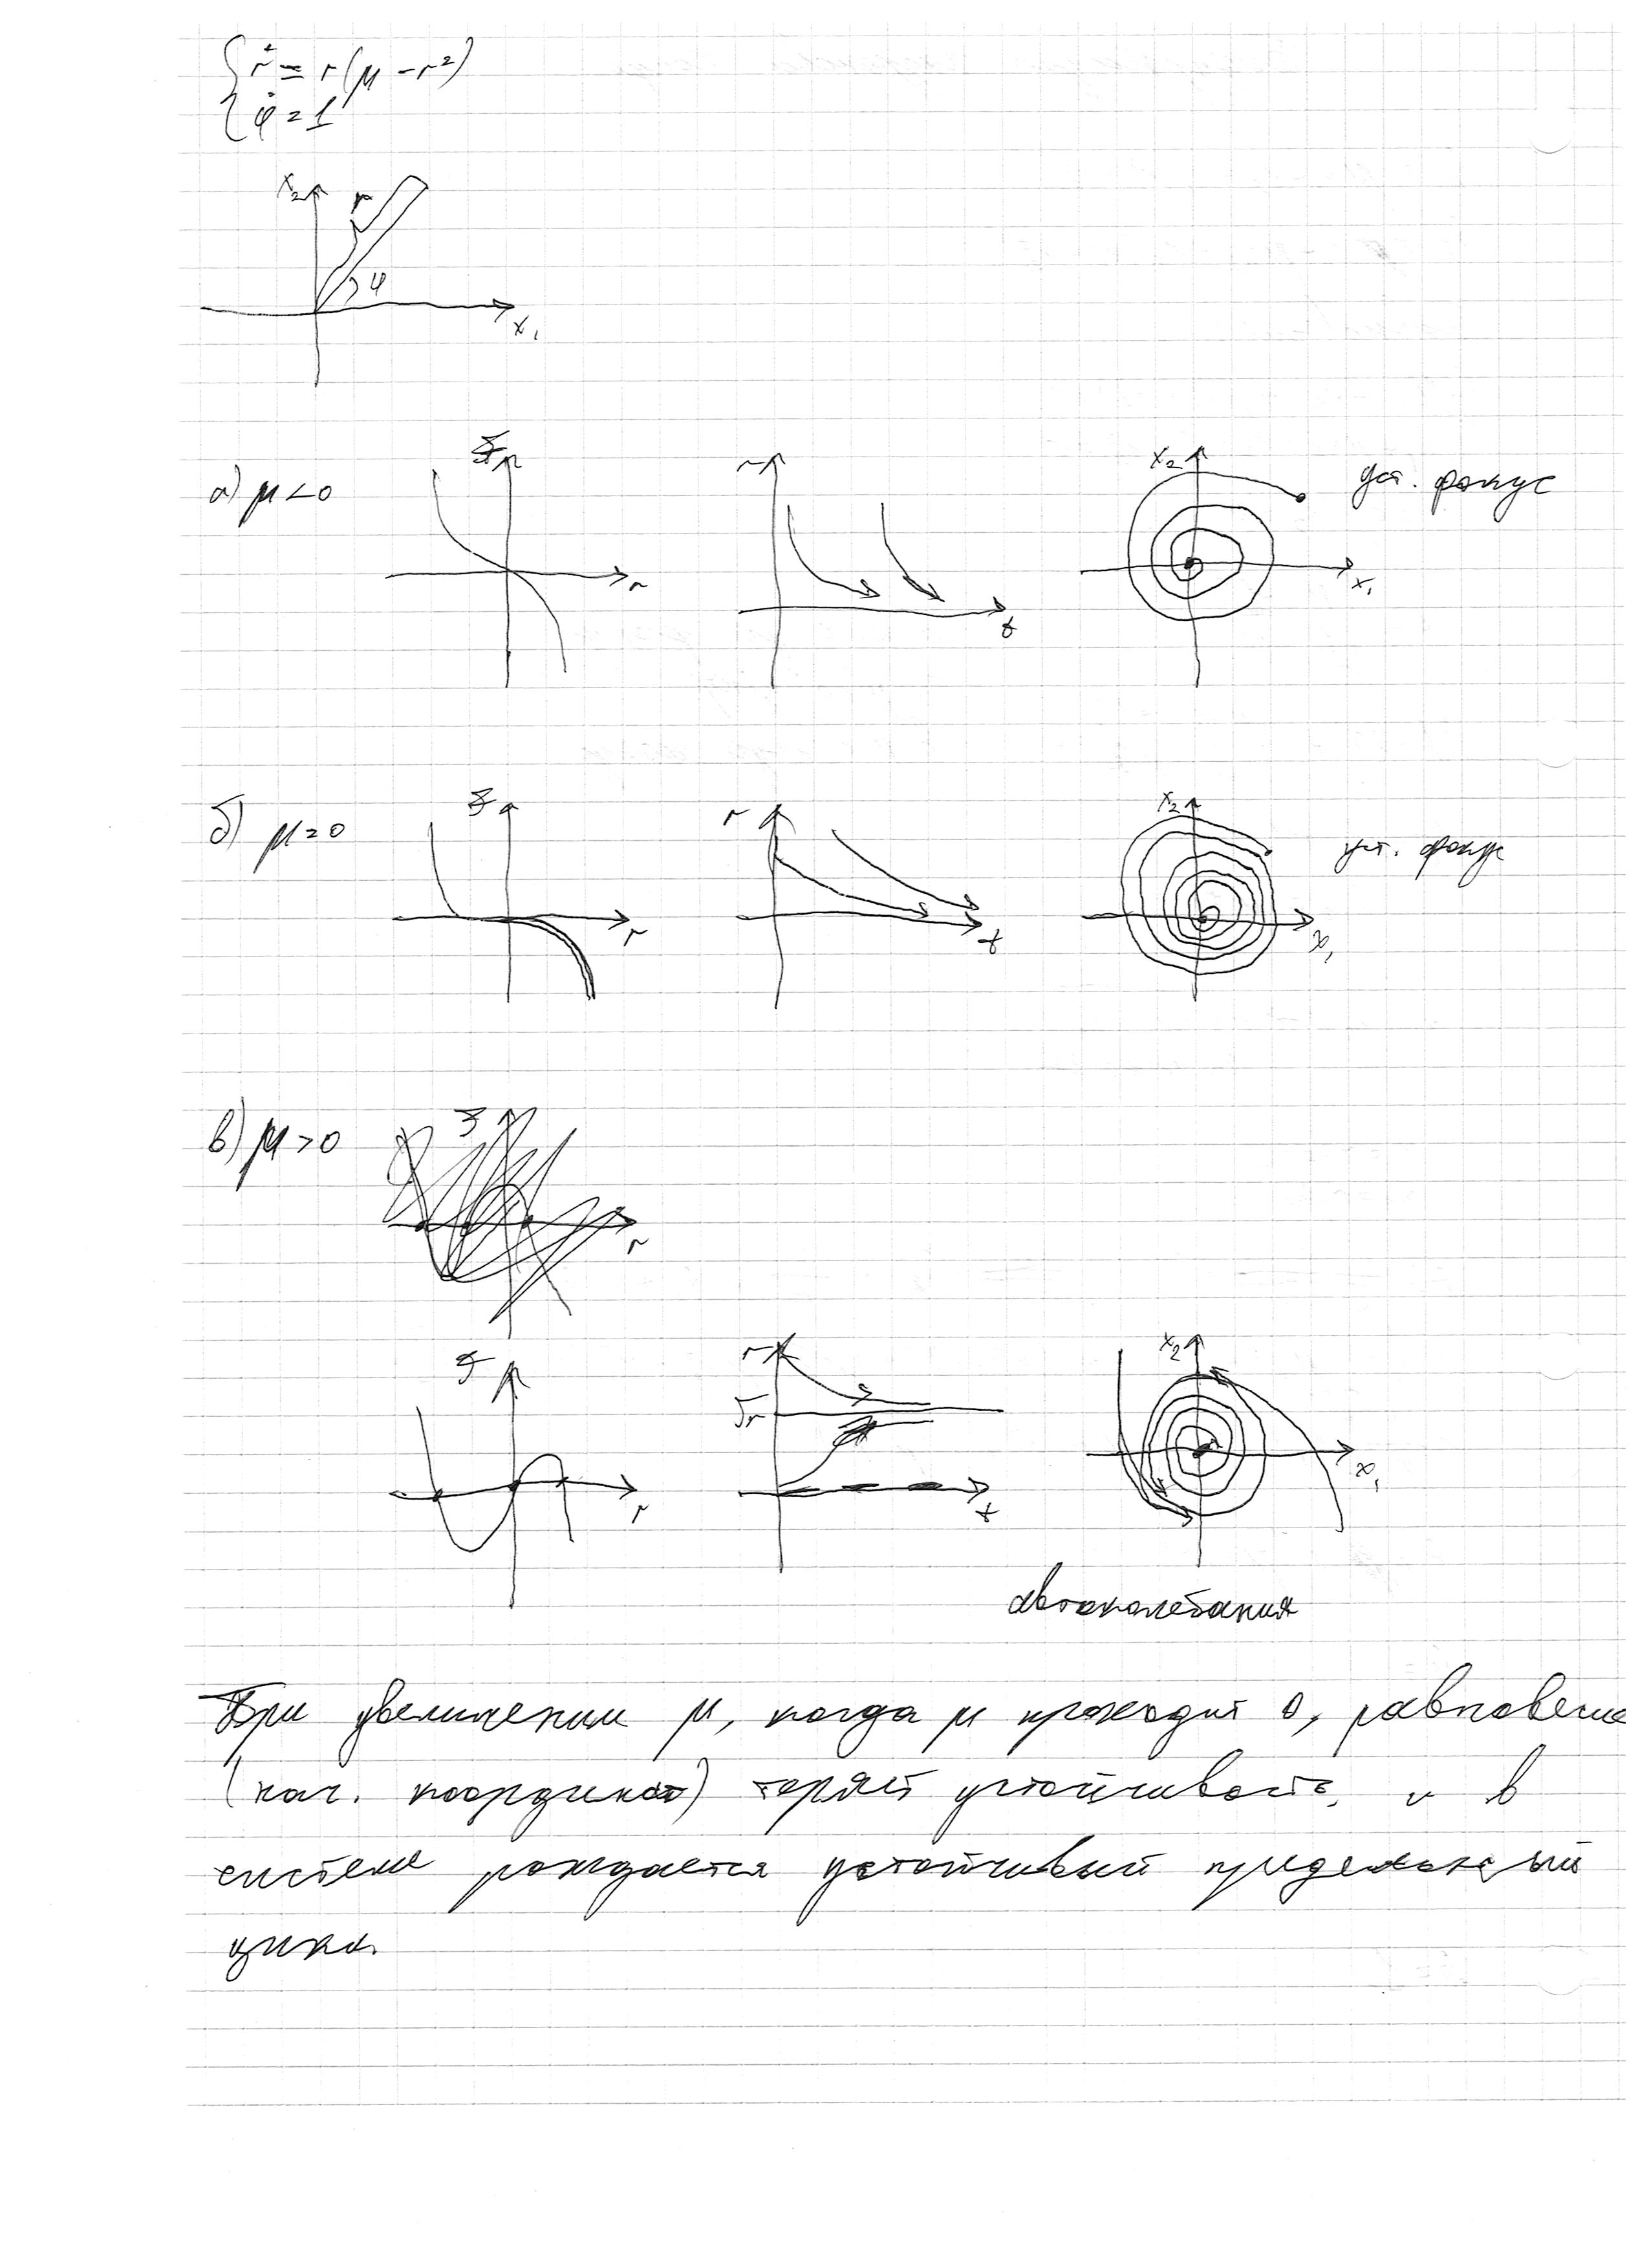 { ṙ = r(μ - r²)
{ φ̇ = 1
x₂ r
φ
x₁
а) μ < 0 r r t x₂ x₁ уст. фокус
б) μ = 0 r r t x₂ x₁ уст. фокус
в) μ > 0 r
r r t x₂ x₁
автоколебания
При увеличении μ, когда μ проходит 0, равновесие
(нач. координат) теряет устойчивость, и в
системе рождается устойчивый предельный
цикл.